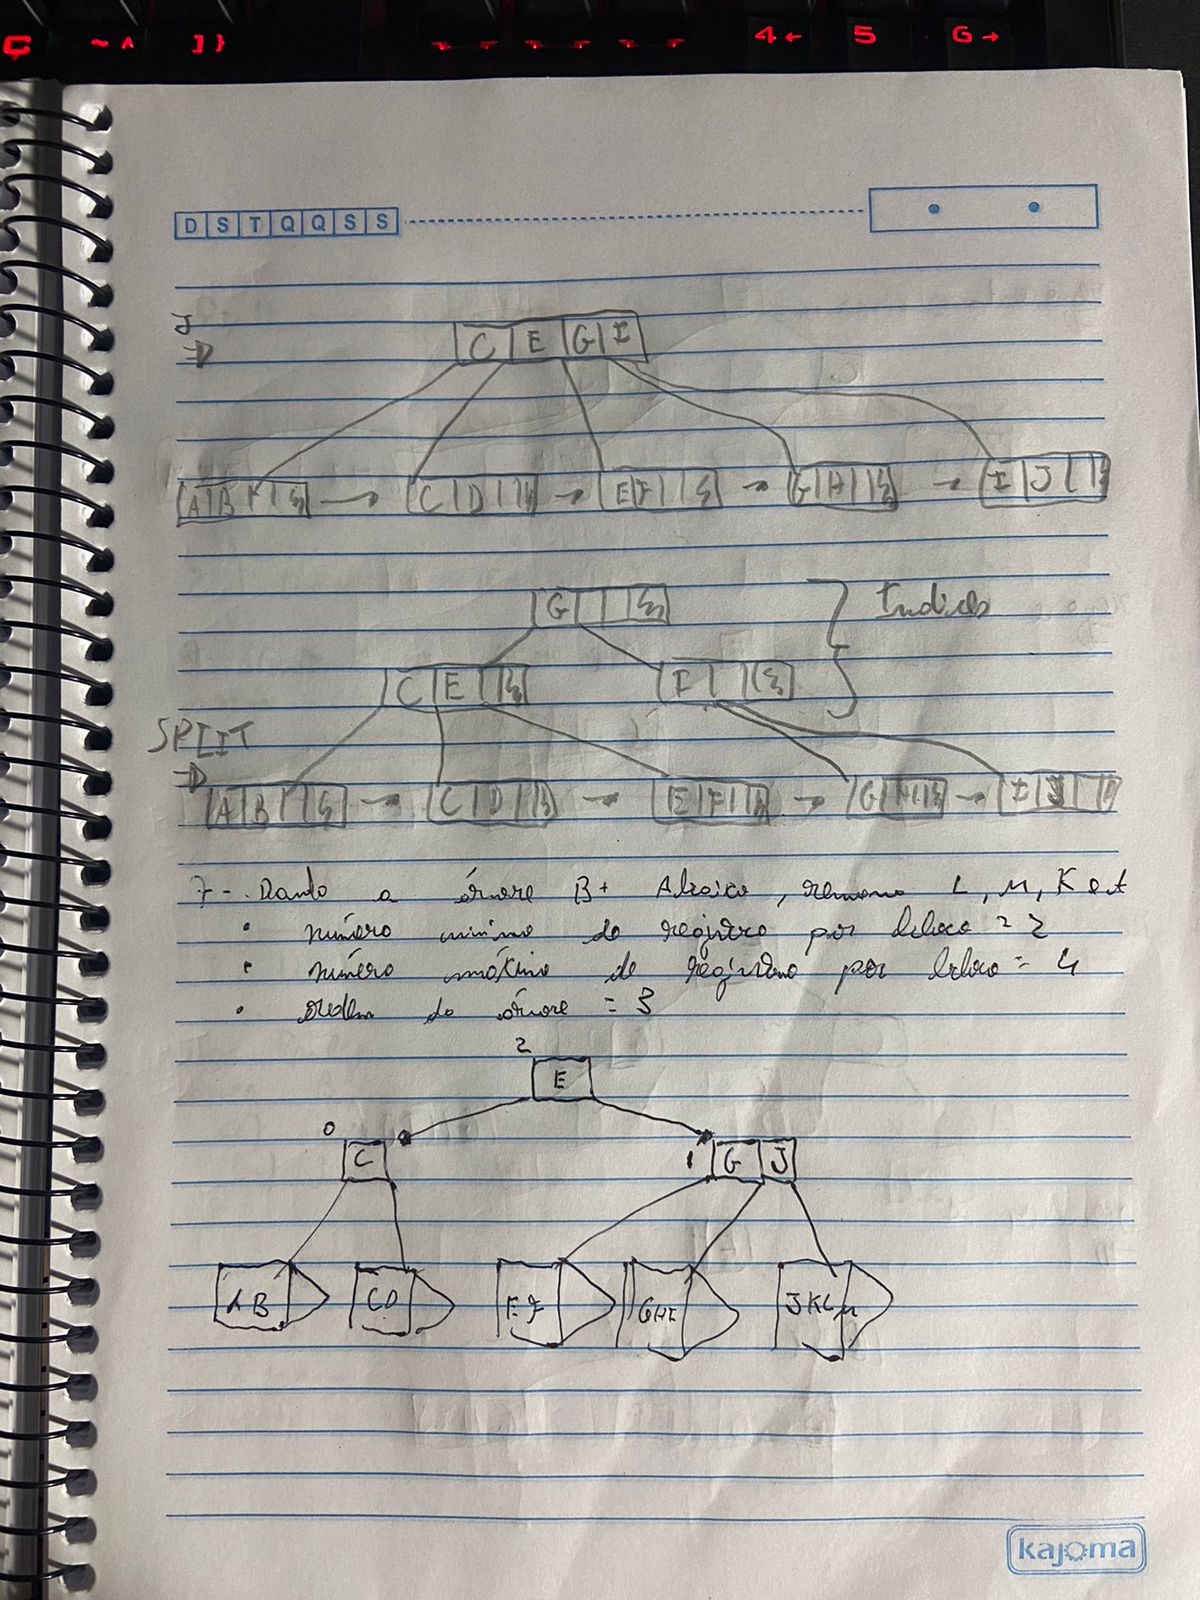 Ç ~ ^ ] } 4 ← 5 6 →
D S T Q Q S S
J
⇒
C E G I
A B → C D → E F → G H → I J
G Indices
C E I
SPLIT
⇒
A B → C D → E F → G H → I J
7 - Dando a árvore B+ Abaixo, remova L, M, K e A
• número minimo de registro por bloco = 2
• número máximo de registro por bloco = 4
• ordem da árvore = 3
2
E
0 C 1 G J
AB CD EF GHI JKLM
kajoma